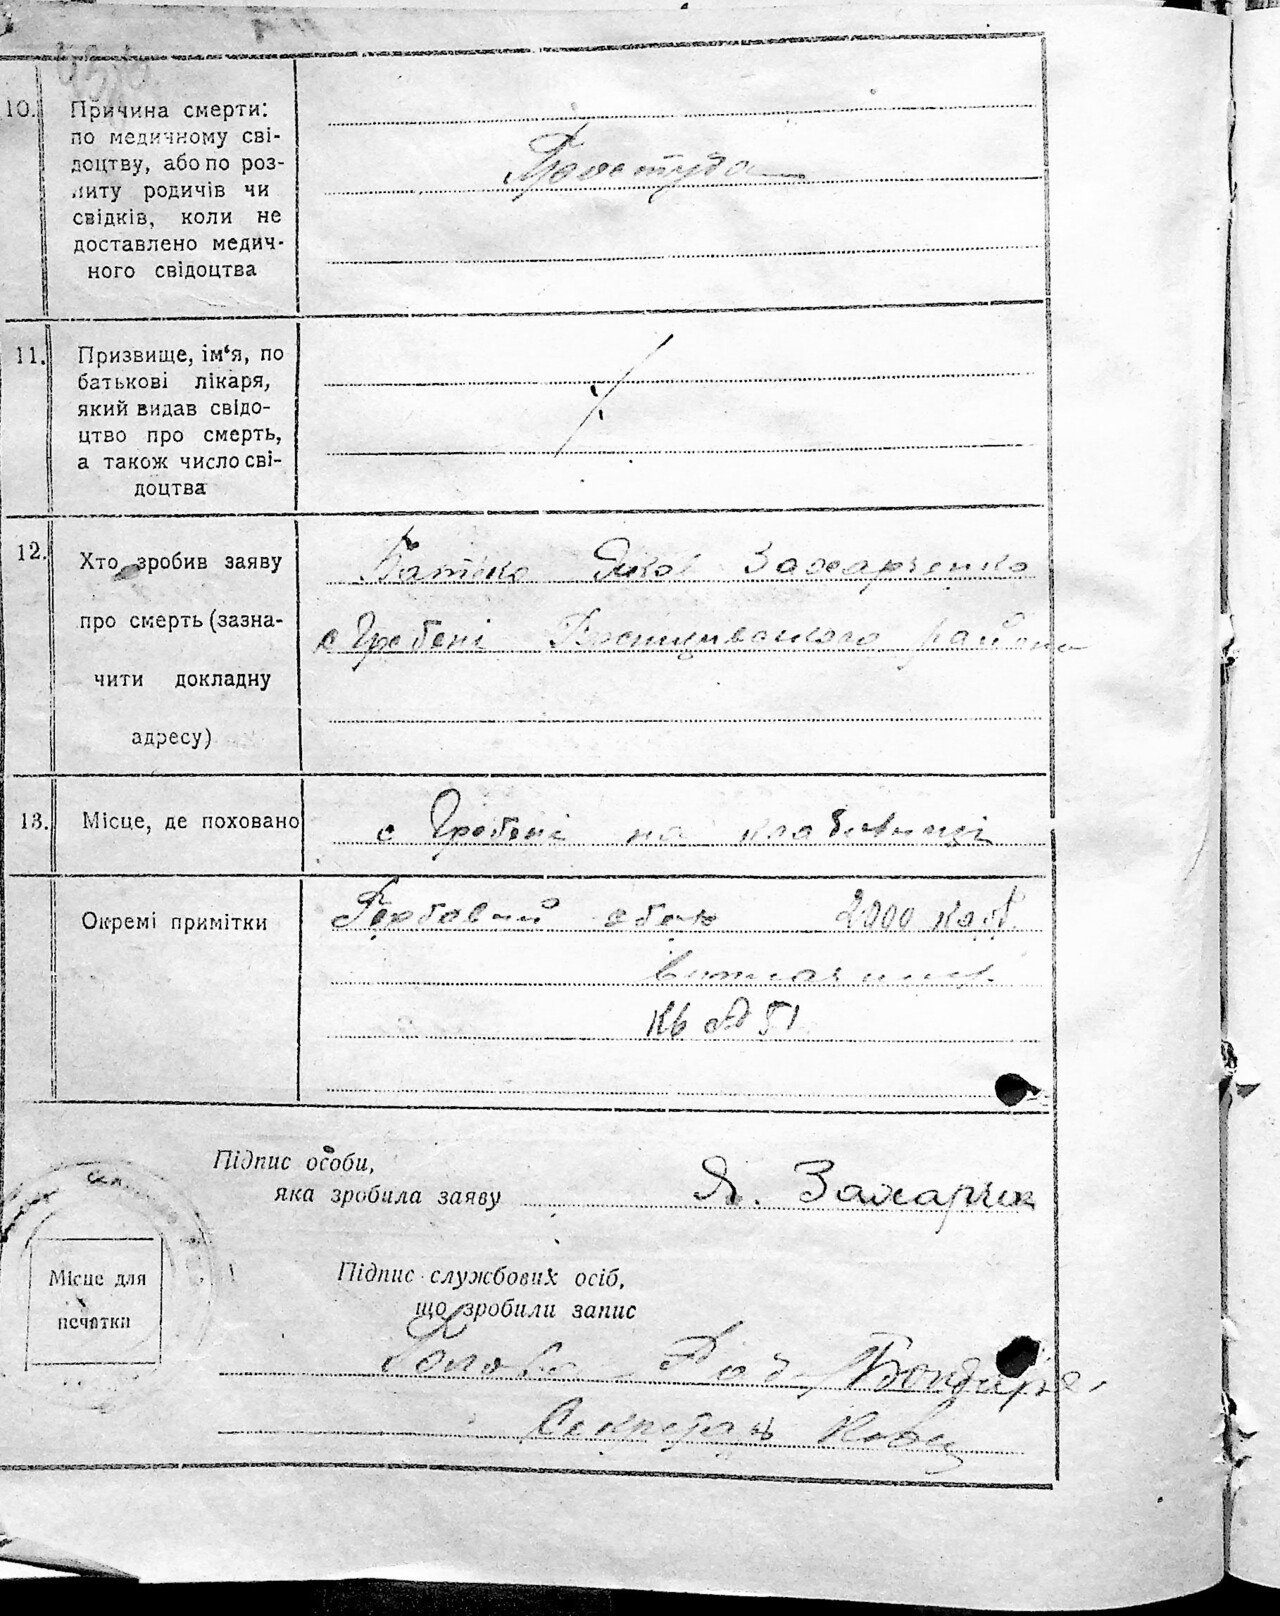 10. Причина смерти:
по медичному сві-
доцтву, або по роз-
питу родичів чи
свідків, коли не
доставлено медич-
ного свідоцтва
Простуда
11. Призвище, ім‘я, по
батькові лікаря,
який видав свідо-
цтво про смерть,
а також число сві-
доцтва
12. Хто зробив заяву
про смерть (зазна-
чити докладну
адресу)
Батько Яков Захарченко
с Гребені района
13. Місце, де поховано
с Гребені на кладовищі
Окремі примітки
Гербовий збор 2000 карб.
Кв № 51
Підпис особи,
яка зробила заяву Я. Захарчен
Місце для
печятки
Підпис службових осіб,
що зробили запис
Голова Бондар
Секретар